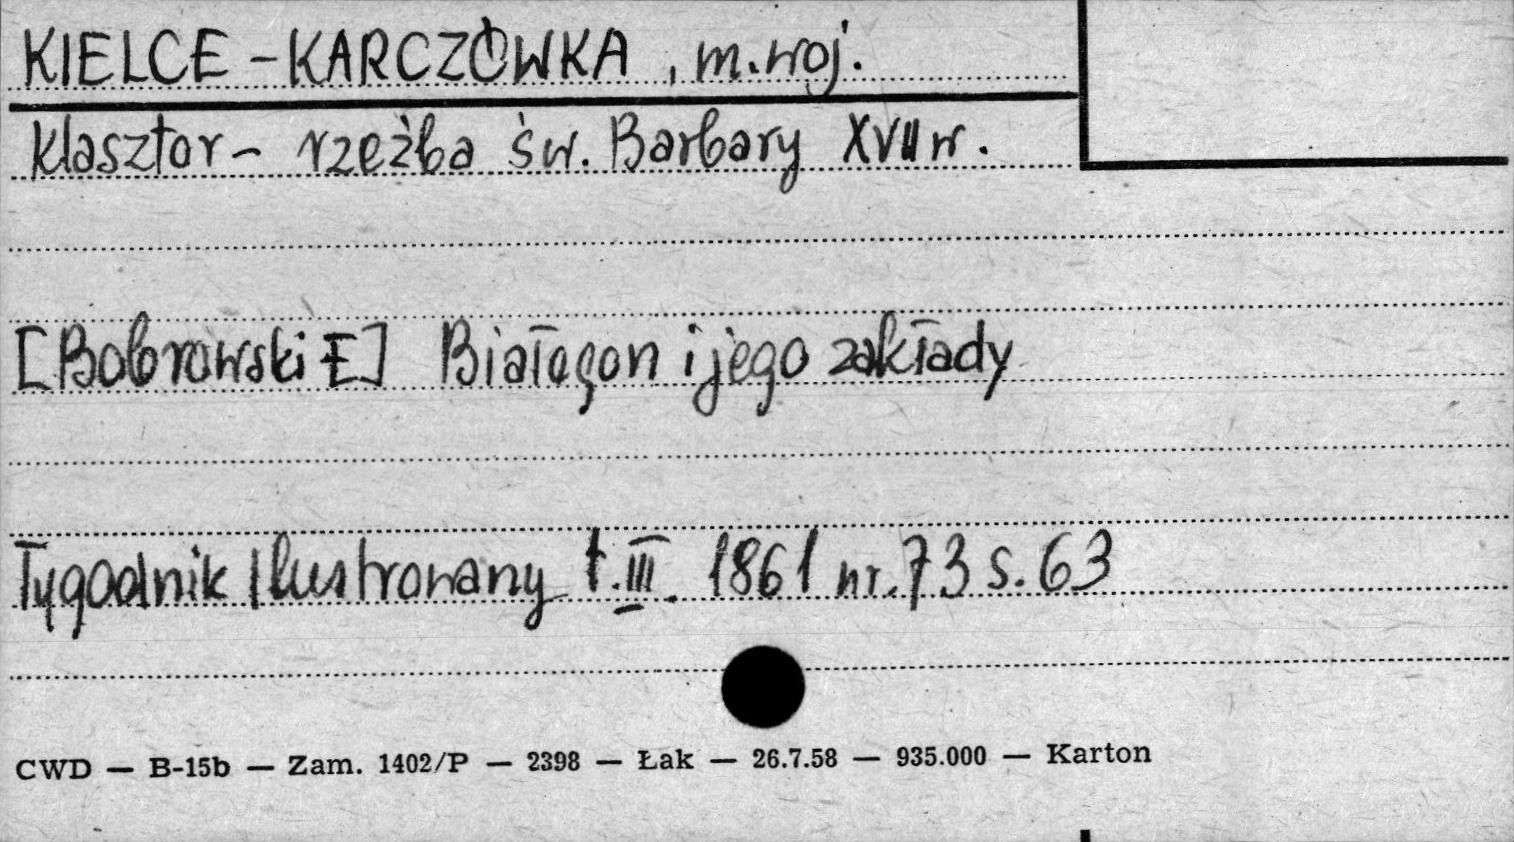 KIELCE - KARCZÓWKA, m. woj.
Klasztor - rzeźba św. Barbary XVII w.
[Bobrowski E] Białogon i jego zakłady
Tygodnik Ilustrowany t. III. 1861 nr. 73 s. 63
CWD — B-15b — Zam. 1402/P — 2398 — Łak — 26.7.58 — 935.000 — Karton